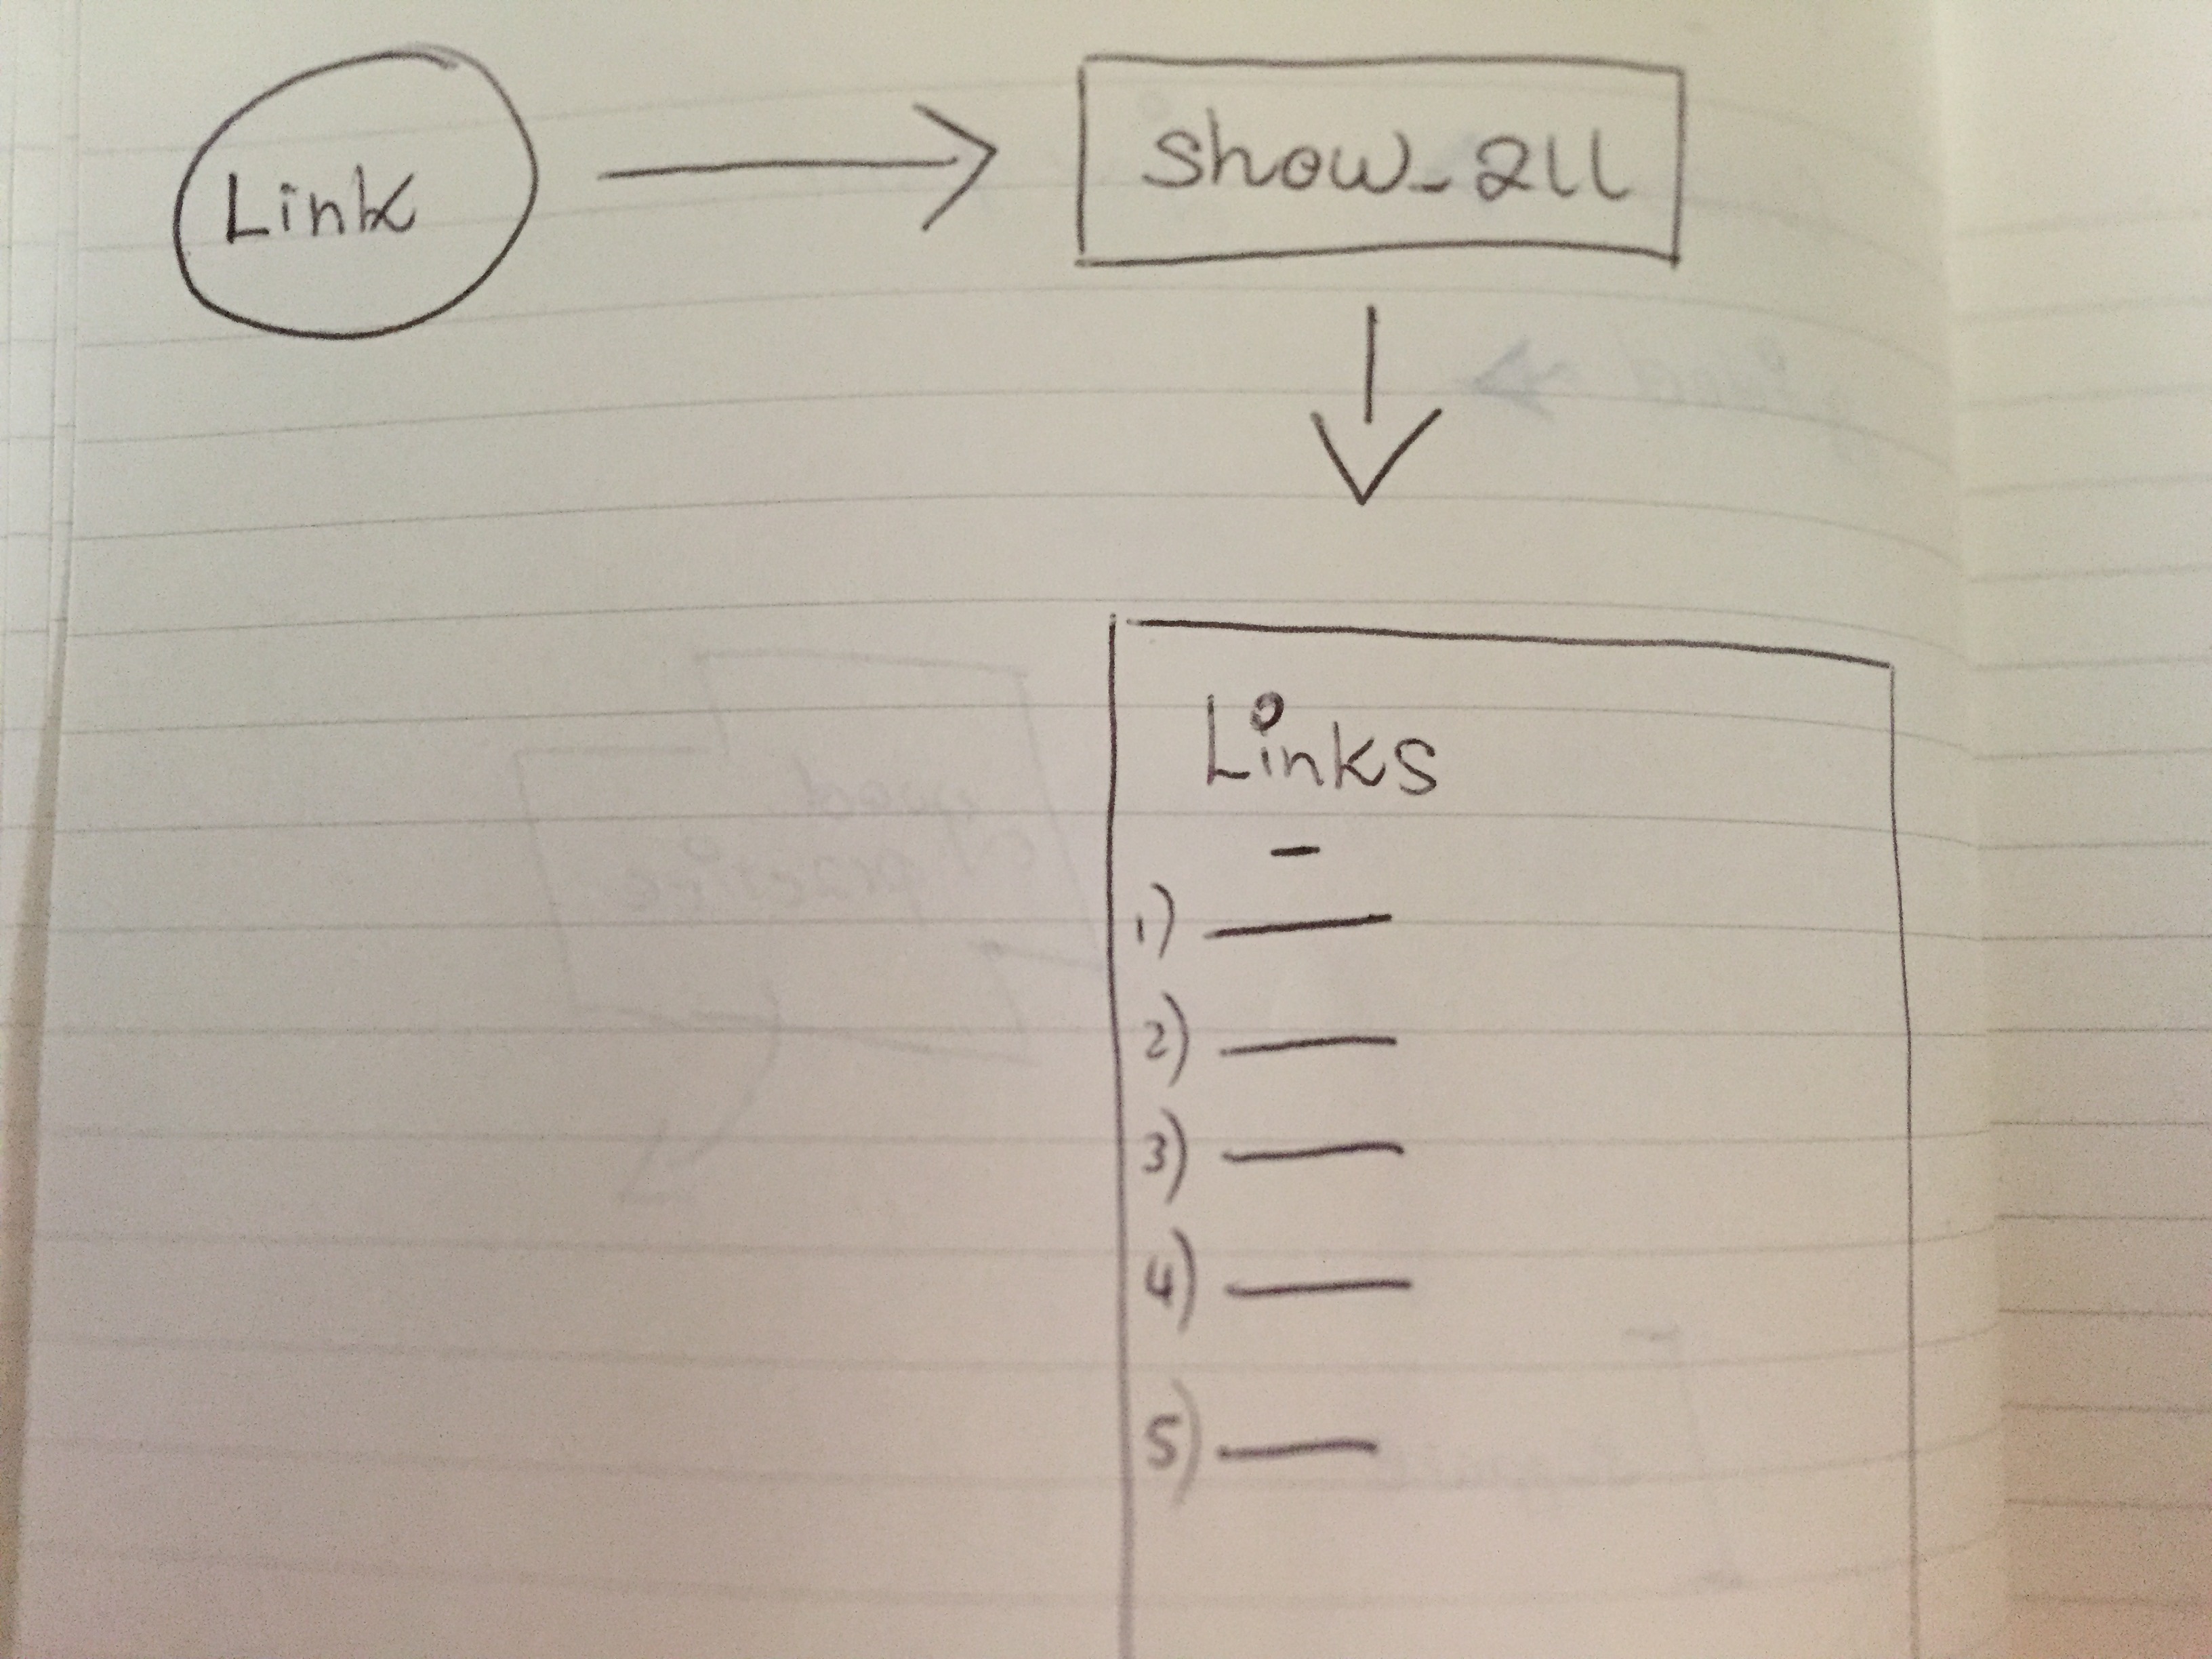 Link
show_all
Links
-
1)
2)
3)
4)
5)